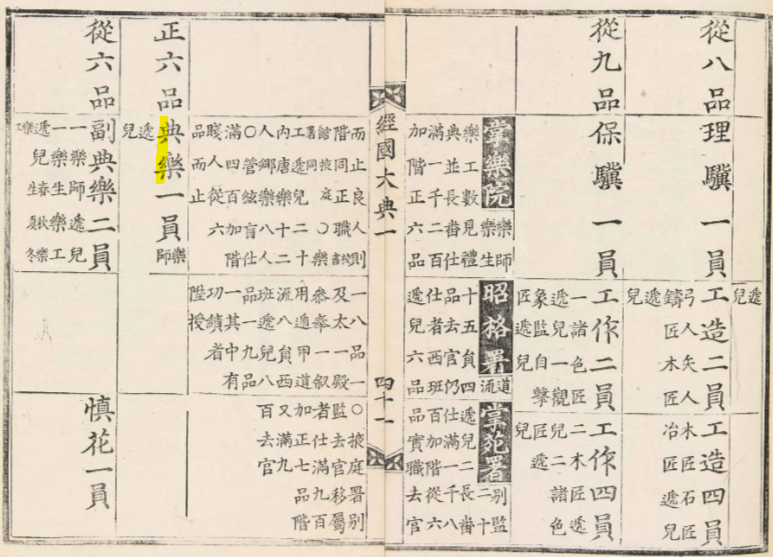 從八品
理驥一員
工造二員
弓人矢人
鑄匠木
遞兒
工造四員
木匠石匠
冶匠遞兒
從九品
保驥一員
工作二員
一諸色匠
遞兒一觀
象監自擊
匠遞兒
工作四員
二木匠遞
兒二諸色
匠遞兒
掌樂院
樂師
樂生
樂工數見禮
典並長番仕
滿一千二百
加階正六品
昭格署
道流
十五員四
品去官仍
仕者西班
遞兒六品
掌苑署
別監
二十
遞兒二長番
仕滿一千八
百加階從六
品實職去官
經國大典一
四十一
而止良人則
階同正職
工遞兒二十
内唐樂十二
人鄉樂八人
〇管絃盲人
滿四百加階
賤人從六
品而止
一品一
及太一殿
參奉甲
用遞
流八員西
班遞兒八
品一九品
一其中有
功績者
陞授
〇掖庭署別
監去官移屬
者仕滿九百
加正七品階
又滿九
百去官
正六品
典樂一員
樂師
遞兒
從六品
副典樂二員
一樂師遞兒
一樂生樂工
遞兒春夏
樂生秋冬
樂工
慎花一員